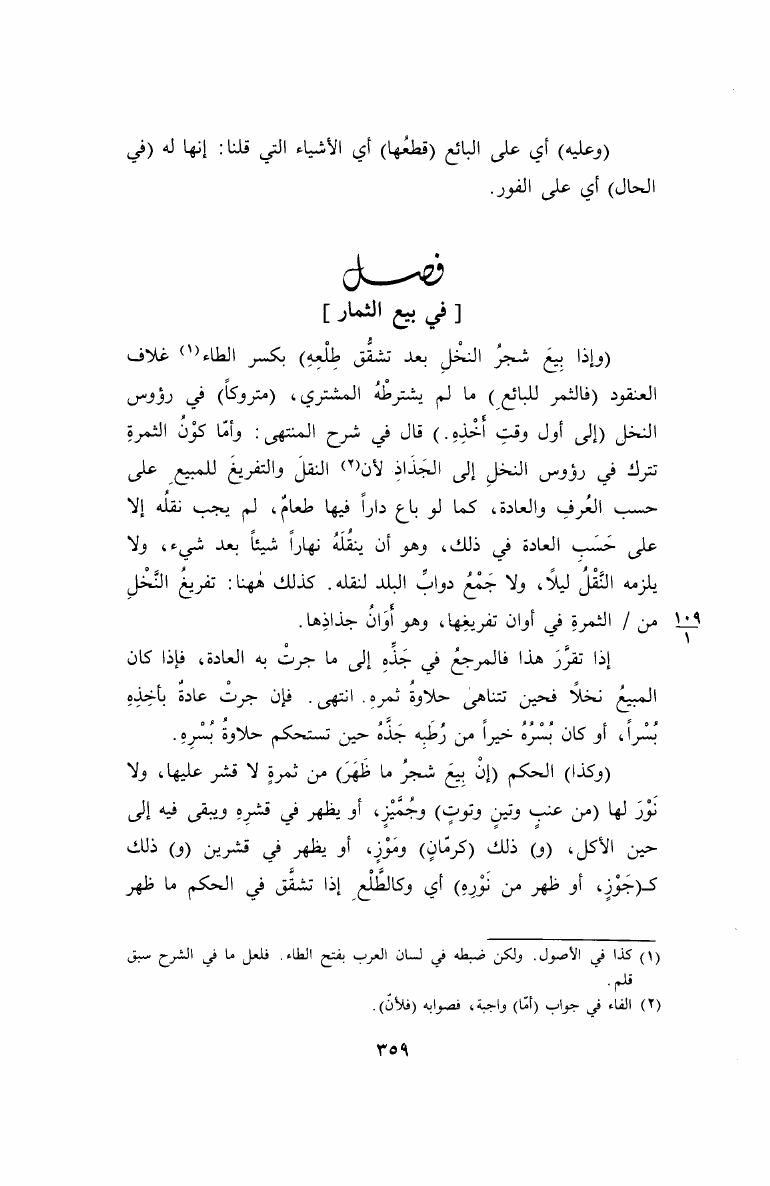 (وعليه) أي على البائع (قطعُها) أي الأشياء التي قلنا: إنها له (في
الحال) أي على الفور.
فصل
[ في بيع الثمار ]
(وإذا بِيعَ شجرُ النخْلِ بعد تشقُّق طِلْعِهِ) بكسر الطاء(١) غلاف
العنقود (فالثمر للبائعِ) ما لم يشترطْهُ المشتري، (متروكاً) في رؤوس
النخل (إلى أول وقتِ أَخْذِهِ.) قال في شرح المنتهى: وأمّا كوْنُ الثمرةِ
تترك في رؤوس النخلِ إلى الجَذاذِ لأن(٢) النقلَ والتفريغَ للمبيعِ على
حسب العُرفِ والعادة، كما لو باع داراً فيها طعامٌ، لم يجب نقلُه إلا
على حَسَبِ العادة في ذلك، وهو أن ينقُلَهُ نهاراً شيئاً بعد شيء، ولا
يلزمه النَّقْلُ ليلًا، ولا جَمْعُ دوابِّ البلد لنقله. كذلك هٰهنا: تفريغُ النَّخْلِ
من / الثمرةِ في أوان تفريغها، وهو أَوَانُ جذاذِها.
١٠٩
١
إذا تقرَّرَ هذا فالمرجعُ في جَذِّهِ إلى ما جرتْ به العادة، فإذا كان
المبيعُ نخلاً فحين تتناهىٰ حلاوةُ ثمرهِ. انتهى. فإن جرتْ عادةٌ بأخذِهِ
بُسْراً، أو كان بُسْرُهُ خيراً من رُطَبِه جَذَّهُ حين تستحكم حلاوةُ بُسْرِهِ.
(وكذا) الحكم (إنْ بِيعَ شجرُ ما ظَهَرَ) من ثمرةٍ لا قشر عليها، ولا
نَوْرَ لها (من عنبٍ وتينٍ وتوتٍ) وجُمَّيْزٍ، أو يظهر في قشرِهِ ويبقى فيه إلى
حين الأكل، (و) ذلك (كرمّانٍ) ومَوْزٍ، أو يظهر في قشرين (و) ذلك
كـ(جَوْزٍ، أو ظهر من نَوْرِهِ) أي وكالطَّلْعِ إذا تشقَّق في الحكم ما ظهر
(١) كذا في الأصول. ولكن ضبطه في لسان العرب بفتح الطاء. فلعل ما في الشرح سبق
قلم.
(٢) الفاء في جواب (أمّا) واجبة، فصوابه (فلأنّ).
٣٥٩